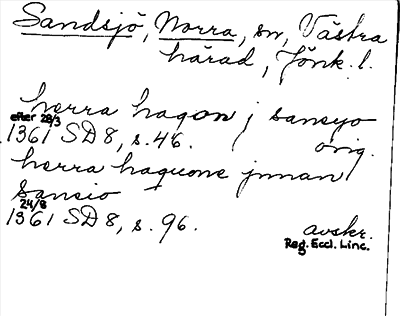 Sandsjö, Norra, sn, Västra
härad, Jönk. l.
herra hagon j sansyo
efter 28/3
1361 SD 8, s. 46. orig.
herra haquone jnnan
Sansio
24/8
1361 SD 8, s. 96. avskr.
Reg. Eccl. Linc.